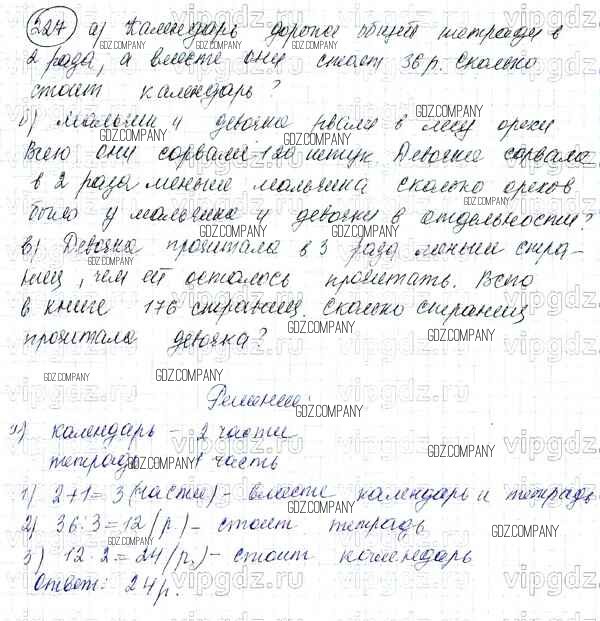 227 а) Календарь дороже общей тетради в
2 раза, а вместе они стоят 36 р. Сколько
стоит календарь?
б) Мальчик и девочка рвали в лесу орехи
Всего они сорвали 120 штук. Девочка сорвала
в 2 раза меньше мальчика сколько орехов
было у мальчика и девочки в отдельности?
в) Девочка прочитала в 3 раза меньше стра-
ниц, чем ей осталось прочитать. Всего
в книге 176 страниц. Сколько страниц
прочитала девочка?
Решение:
а) календарь - 2 части
тетрадь 1 часть
1) 2+1=3 (части) - вместе календарь и тетрадь
2) 36:3=12 (р.) - стоит тетрадь
3) 12·2=24 (р.) - стоит календарь
Ответ: 24 р.